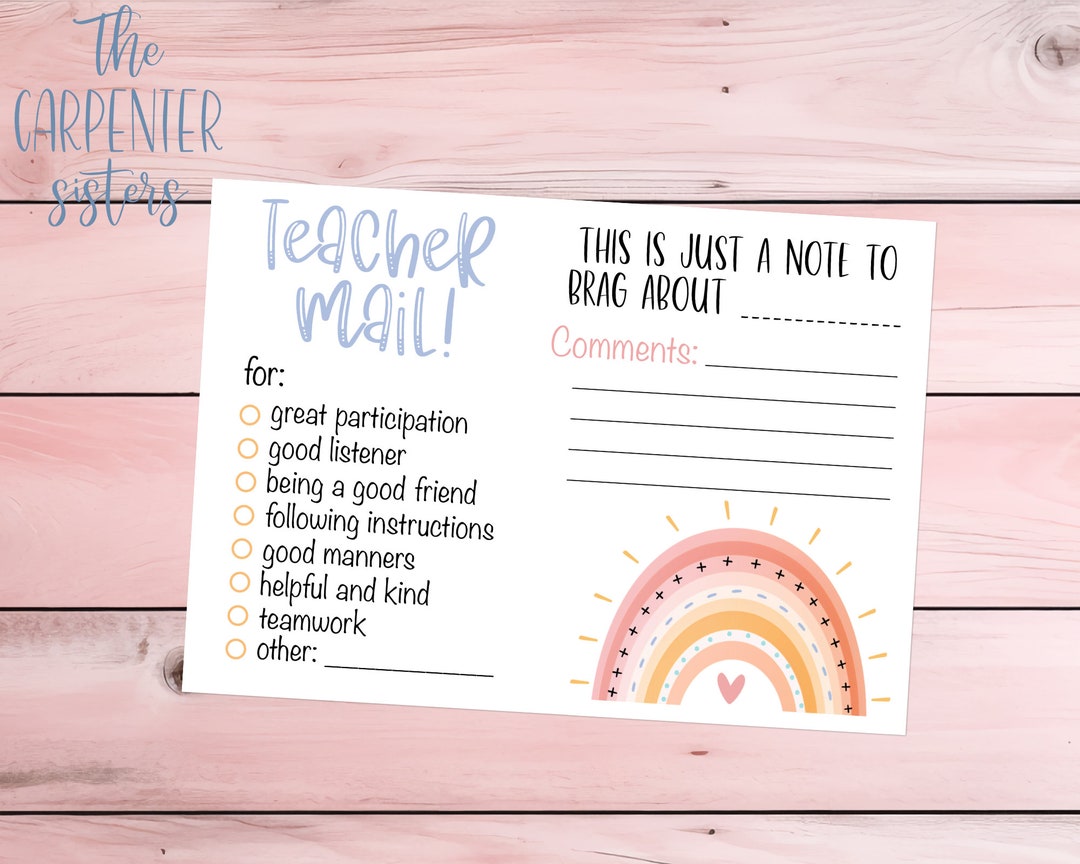 The
CARPENTER
sisters
Teacher
mail!
for:
great participation
good listener
being a good friend
following instructions
good manners
helpful and kind
teamwork
other:
THIS IS JUST A NOTE TO
BRAG ABOUT
Comments: